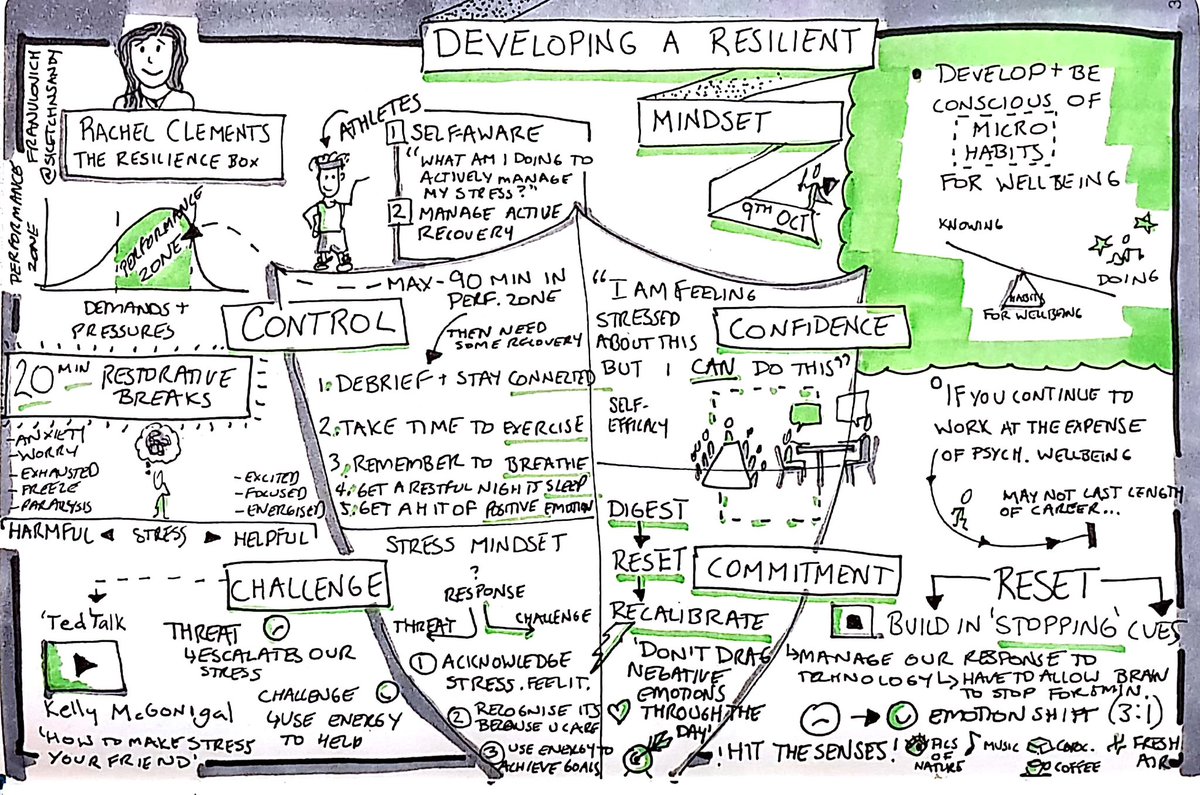 DEVELOPING A RESILIENT
MINDSET
9TH OCT
FRANULOVICH
@SKETCHINSANDY
RACHEL CLEMENTS
THE RESILIENCE BOX
PERFORMANCE
ZONE
PERFORMANCE
ZONE
DEMANDS +
PRESSURES
ATHLETES
1 SELF-AWARE
"WHAT AM I DOING TO
ACTIVELY MANAGE
MY STRESS?"
2 MANAGE ACTIVE
RECOVERY
• DEVELOP + BE
CONSCIOUS OF
MICRO
HABITS
FOR WELLBEING
KNOWING
DOING
HABITS
FOR WELLBEING
CONTROL
MAX - 90 MIN IN
PERF. ZONE
THEN NEED
SOME RECOVERY
1. DEBRIEF + STAY CONNECTED
2. TAKE TIME TO EXERCISE
3. REMEMBER TO BREATHE
4. GET A RESTFUL NIGHTS SLEEP
5. GET A HIT OF POSITIVE EMOTION
20 MIN RESTORATIVE
BREAKS
- ANXIETY
- WORRY
- EXHAUSTED
- FREEZE
- PARALYSIS
- EXCITED
- FOCUSED
- ENERGISED
HARMFUL STRESS HELPFUL
CONFIDENCE
"I AM FEELING
STRESSED
ABOUT THIS
BUT I CAN DO THIS"
SELF-
EFFICACY
DIGEST
RESET
RECALIBRATE
'DON'T DRAG
NEGATIVE
EMOTIONS
THROUGH THE
DAY'
IF YOU CONTINUE TO
WORK AT THE EXPENSE
OF PSYCH. WELLBEING
MAY NOT LAST LENGTH
OF CAREER...
CHALLENGE
'Ted Talk
Kelly McGonigal
'HOW TO MAKE STRESS
YOUR FRIEND'
THREAT
ESCALATES OUR
STRESS
CHALLENGE
USE ENERGY
TO HELP
STRESS MINDSET
?
RESPONSE
THREAT
CHALLENGE
1 ACKNOWLEDGE
STRESS. FEEL IT.
2 RECOGNISE ITS
BECAUSE U CARE
3 USE ENERGY TO
ACHIEVE GOALS
COMMITMENT
RESET
BUILD IN 'STOPPING' CUES
MANAGE OUR RESPONSE TO
TECHNOLOGY
HAVE TO ALLOW BRAIN
TO STOP FOR 5MIN.
EMOTION SHIFT (3:1)
! HIT THE SENSES!
PICS
OF
NATURE
MUSIC
CHOC.
COFFEE
FRESH
AIR